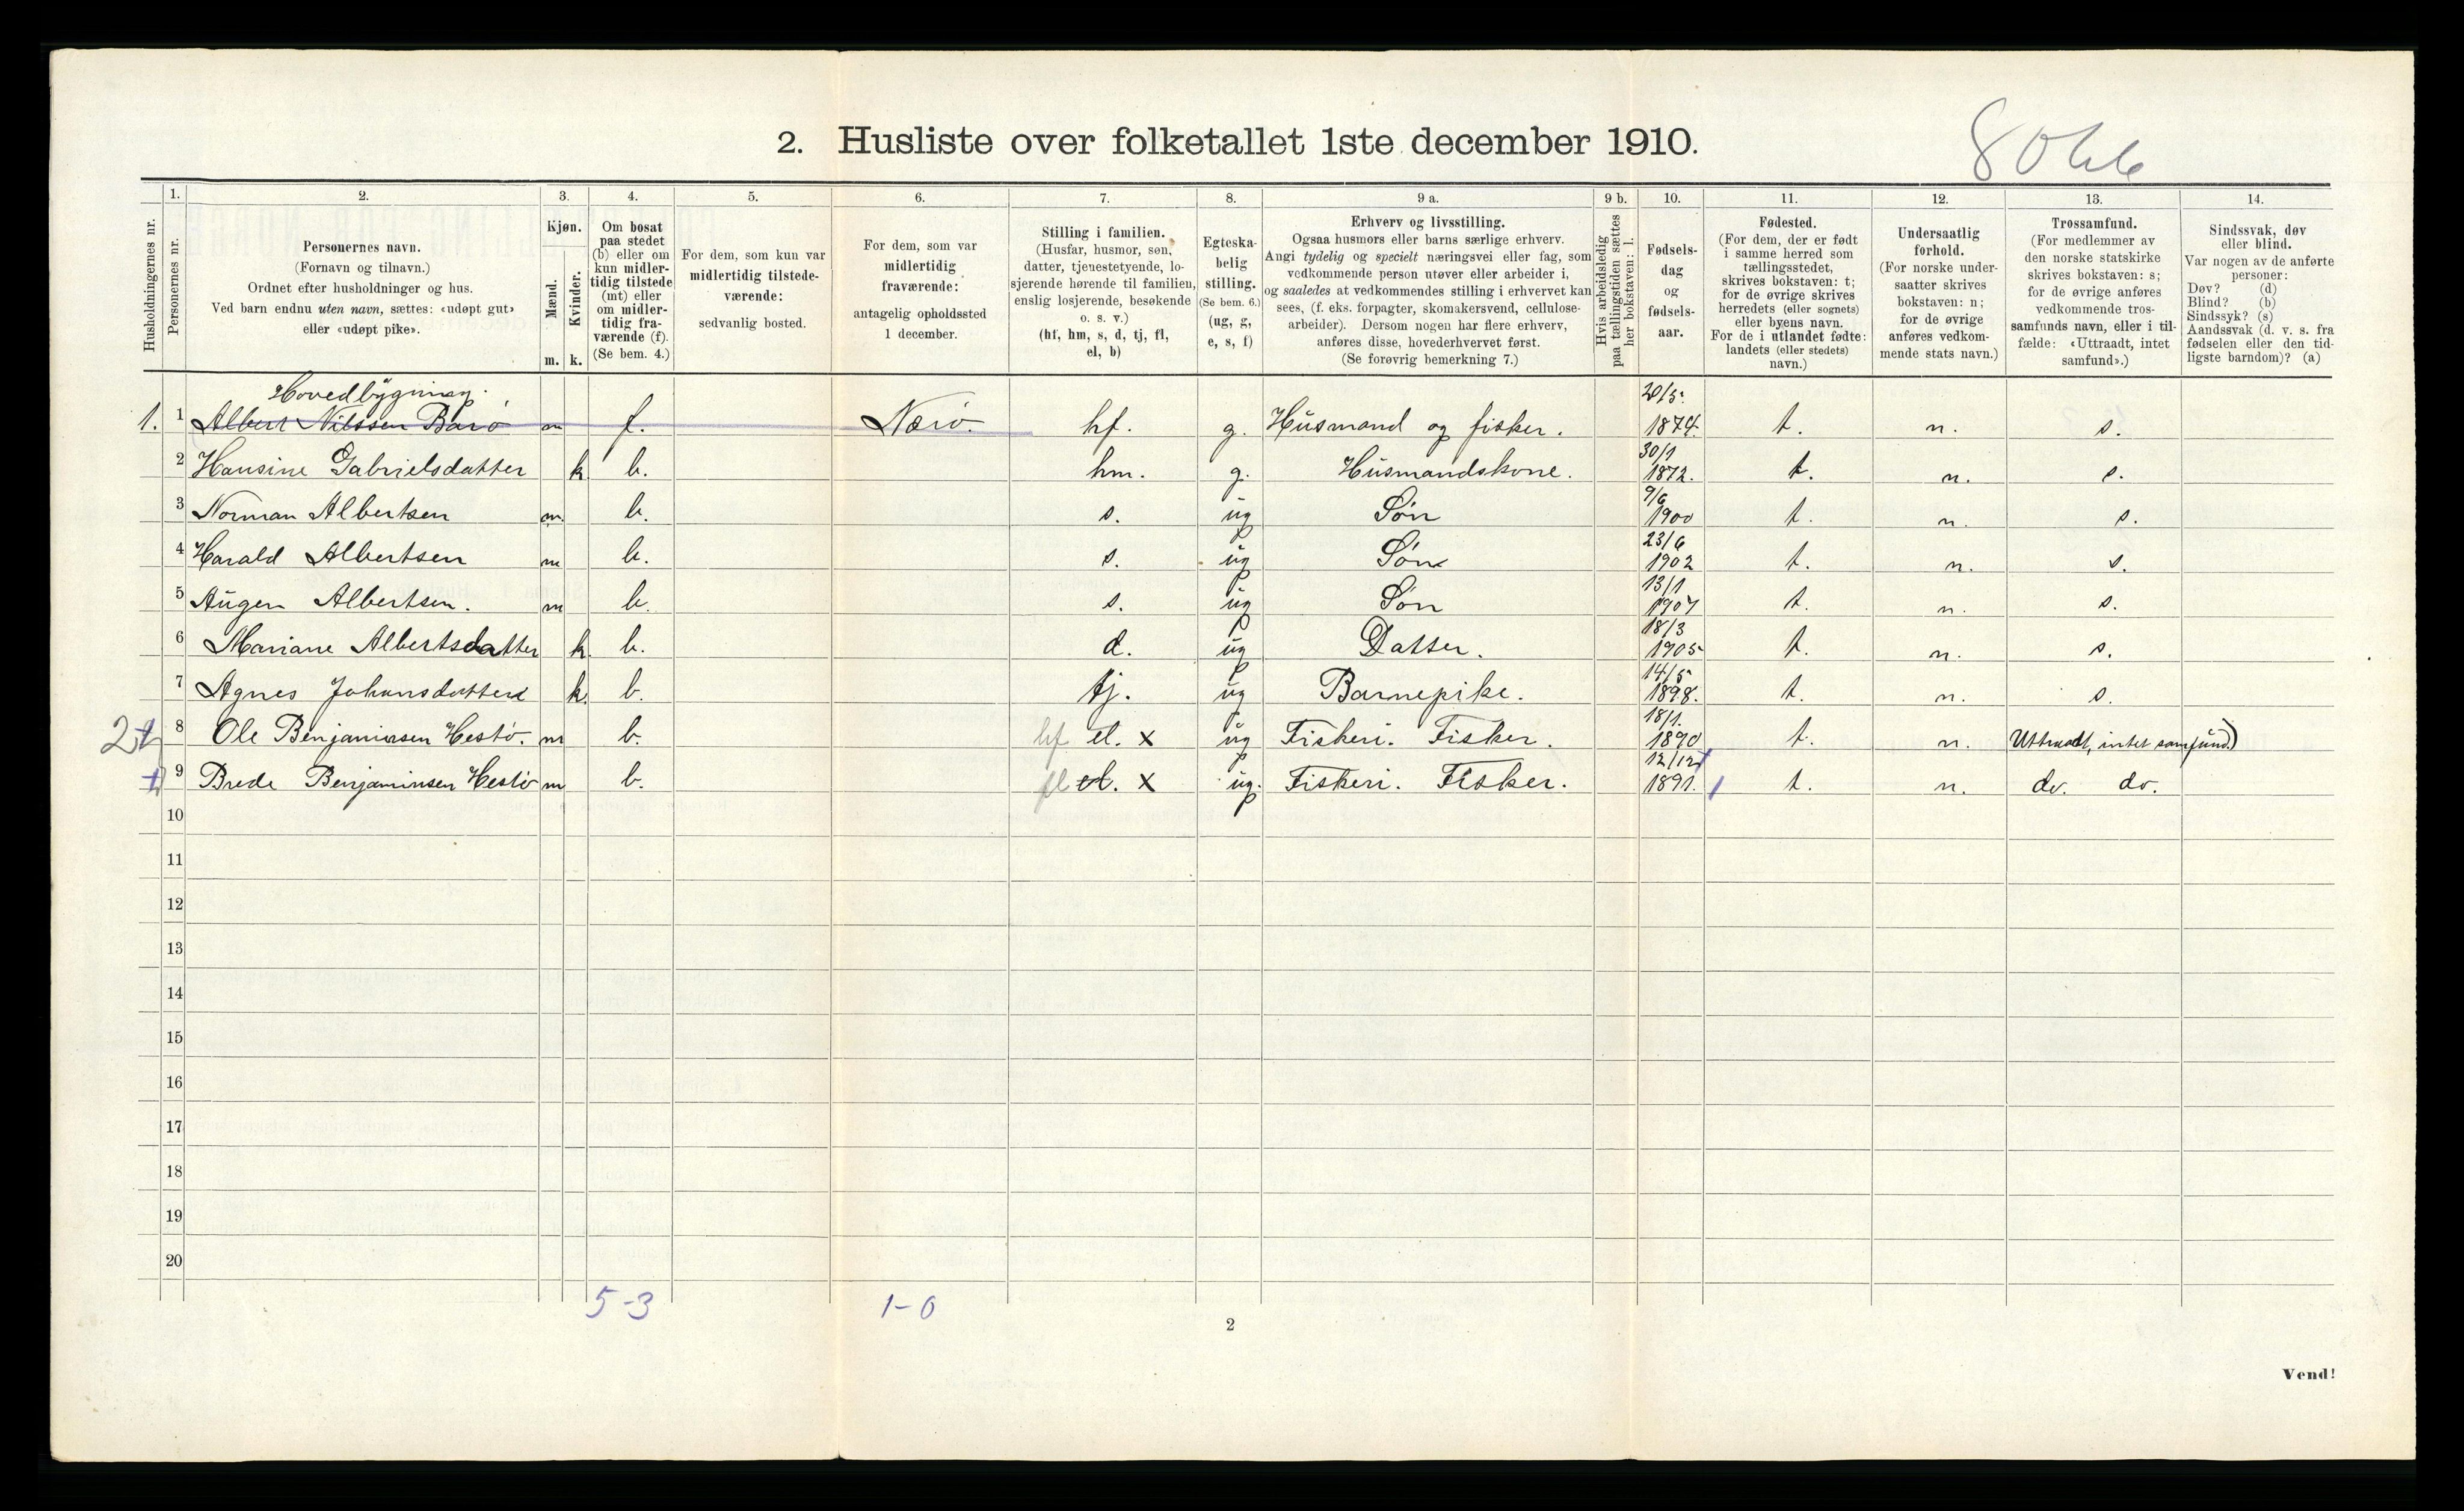 2. Husliste over folketallet 1ste december 1910.
1. 2. 3. 4. 5. 6. 7. 8. 9 a. 9 b. 10. 11. 12. 13. 14.
Husholdningernes nr.
Personernes nr.
Personernes navn.
(Fornavn og tilnavn.)
Ordnet efter husholdninger og hus.
Ved barn endnu uten navn, sættes: «udøpt gut»
eller «udøpt pike».
Kjøn.
Mænd.
Kvinder.
m. k.
Om bosat
paa stedet
(b) eller om
kun midler-
tidig tilstede
(mt) eller
om midler-
tidig fra-
værende (f).
(Se bem. 4.)
For dem, som kun var
midlertidig tilstede-
værende:
sedvanlig bosted.
For dem, som var
midlertidig
fraværende:
antagelig opholdssted
1 december.
Stilling i familien.
(Husfar, husmor, søn,
datter, tjenestetyende, lo-
sjerende hørende til familien,
enslig losjerende, besøkende
o. s. v.)
(hf, hm, s, d, tj, fl,
el, b)
Egteska-
belig
stilling.
(Se bem. 6.)
(ug, g,
e, s, f)
Erhverv og livsstilling.
Ogsaa husmors eller barns særlige erhverv.
Angi tydelig og specielt næringsvei eller fag, som
vedkommende person utøver eller arbeider i,
og saaledes at vedkommendes stilling i erhvervet kan
sees, (f. eks. forpagter, skomakersvend, cellulose-
arbeider). Dersom nogen har flere erhverv,
anføres disse, hovederhvervet først.
(Se forøvrig bemerkning 7.)
Hvis arbeidsledig
paa tællingstiden sættes
her bokstaven: l.
Fødsels-
dag
og
fødsels-
aar.
Fødested.
(For dem, der er født
i samme herred som
tællingsstedet,
skrives bokstaven: t;
for de øvrige skrives
herredets (eller sognets)
eller byens navn.
For de i utlandet fødte:
landets (eller stedets)
navn.)
Undersaatlig
forhold.
(For norske under-
saatter skrives
bokstaven: n;
for de øvrige
anføres vedkom-
mende stats navn.)
Trossamfund.
(For medlemmer av
den norske statskirke
skrives bokstaven: s;
for de øvrige anføres
vedkommende tros-
samfunds navn, eller i til-
fælde: «Uttraadt, intet
samfund».)
Sindssvak, døv
eller blind.
Var nogen av de anførte
personer:
Døv? (d)
Blind? (b)
Sindssyk? (s)
Aandssvak (d. v. s. fra
fødselen eller den tid-
ligste barndom)? (a)
Hovedbygning.
1. 1 Albert Nilssen Barø m f. Nærø. hf. g. Husmand og fisker. 20/5. 1874. t. n. s.
2 Hansine Gabrielsdatter k b. hm. g. Husmandskone. 30/1 1872. t. n. s.
3 Norman Albertsen m. b. s. ug Søn 9/6 1900 t. n. s.
4 Harald Albertsen m b. s. ug Søn 23/6 1902 t. n. s.
5 Augen Albertsen. m b. s. ug Søn 13/1 1907 t. n. s.
6 Mariane Albertsdatter k. b. d. ug Datter. 18/3 1905 t. n. s.
7 Agnes Johansdatter k. b. tj. ug Barnepike. 14/5 1898. t. n. s.
2 8 Ole Benjaminsen Hestø. m b. hf el. x ug Fiskeri. Fisker. 18/1. 1890 t. n. Uttraadt, intet samfund.)
9 Brede Benjaminsen Hestø m b. fl el. x ug. Fiskeri. Fisker. 12/12 1891. t. n. do. do.
10
11
12
13
14
15
16
17
18
19
20
5-3 1-0
2
Vend!